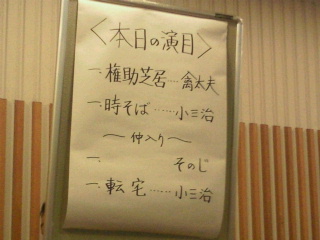 ＜本日の演目＞
一、権助芝居…禽太夫
一、時そば……小三治
〜仲入り〜
一、 そのじ
一、転宅……小三治